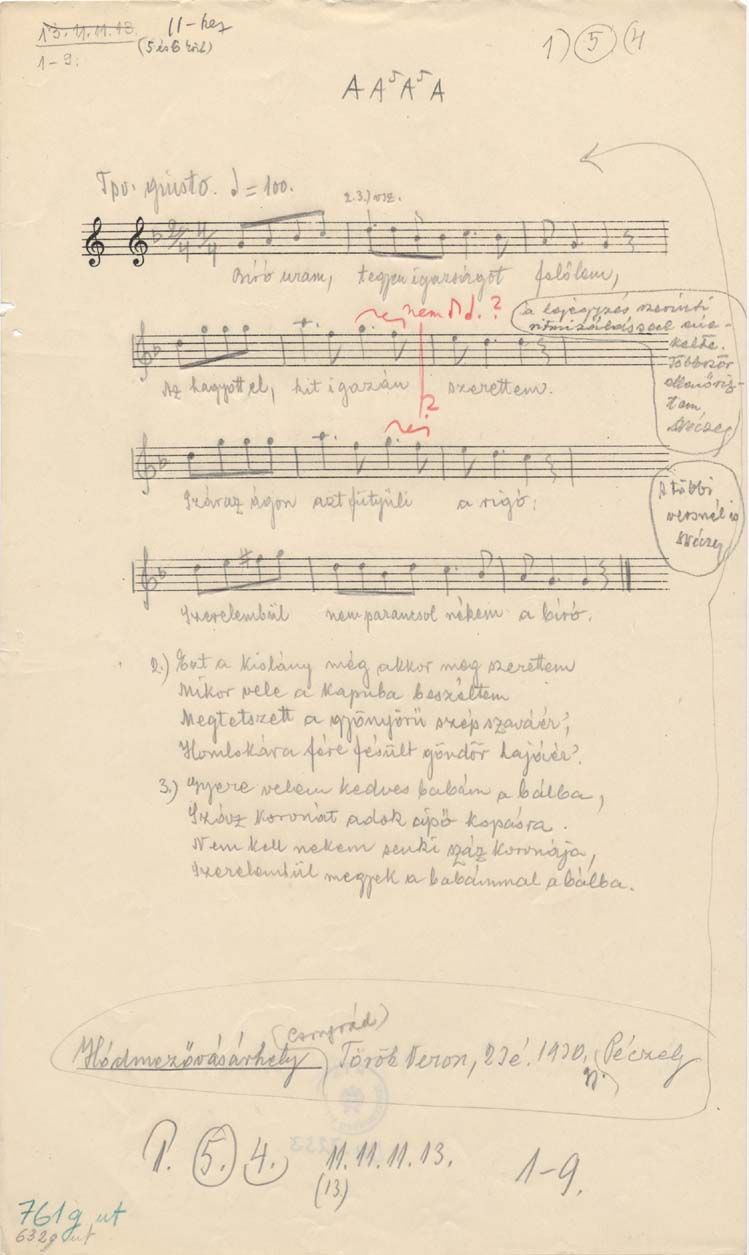 13. 11. 11. 13. 11-hez
(5 és 6 közt)
1-9.
1) 5 (4
A A⁵ A⁵ A
Tpo. giusto. = 100.
2.3.) vsz.
2/4 4/4
Bíró uram, tegyen igazságot felőlem,
rej nem d.?
a lejegyzés szerinti
ritmizálással éne-
kelte.
Többször
ellenőriz-
tem,
Péczely
Az hagyott el, kit igazán szerettem.
?
rej
Száraz ágon azt fütyüli a rigó:
A többi
versnél is
Péczely
Szerelembül nem parancsol nékem a bíró.
2.) Ezt a kislány még akkor meg szerettem
Mikor vele a kapuba beszéltem
Megtetszett a gyönyörű szép szaváér',
Homlokára féré fésült göndör hajáér'.
3.) Gyere velem kedves babám a bálba,
Száz koronát adok cipő kopásra.
Nem kell nekem senki száz koronája,
Szerelembül megyek a babámmal a bálba.
(Csongrád)
Hódmezővásárhely, Török Veron, 23 é. 1930. (Péczely
5. 4. 11. 11. 11. 13. 1-9.
(13)
761g ut
632g ut